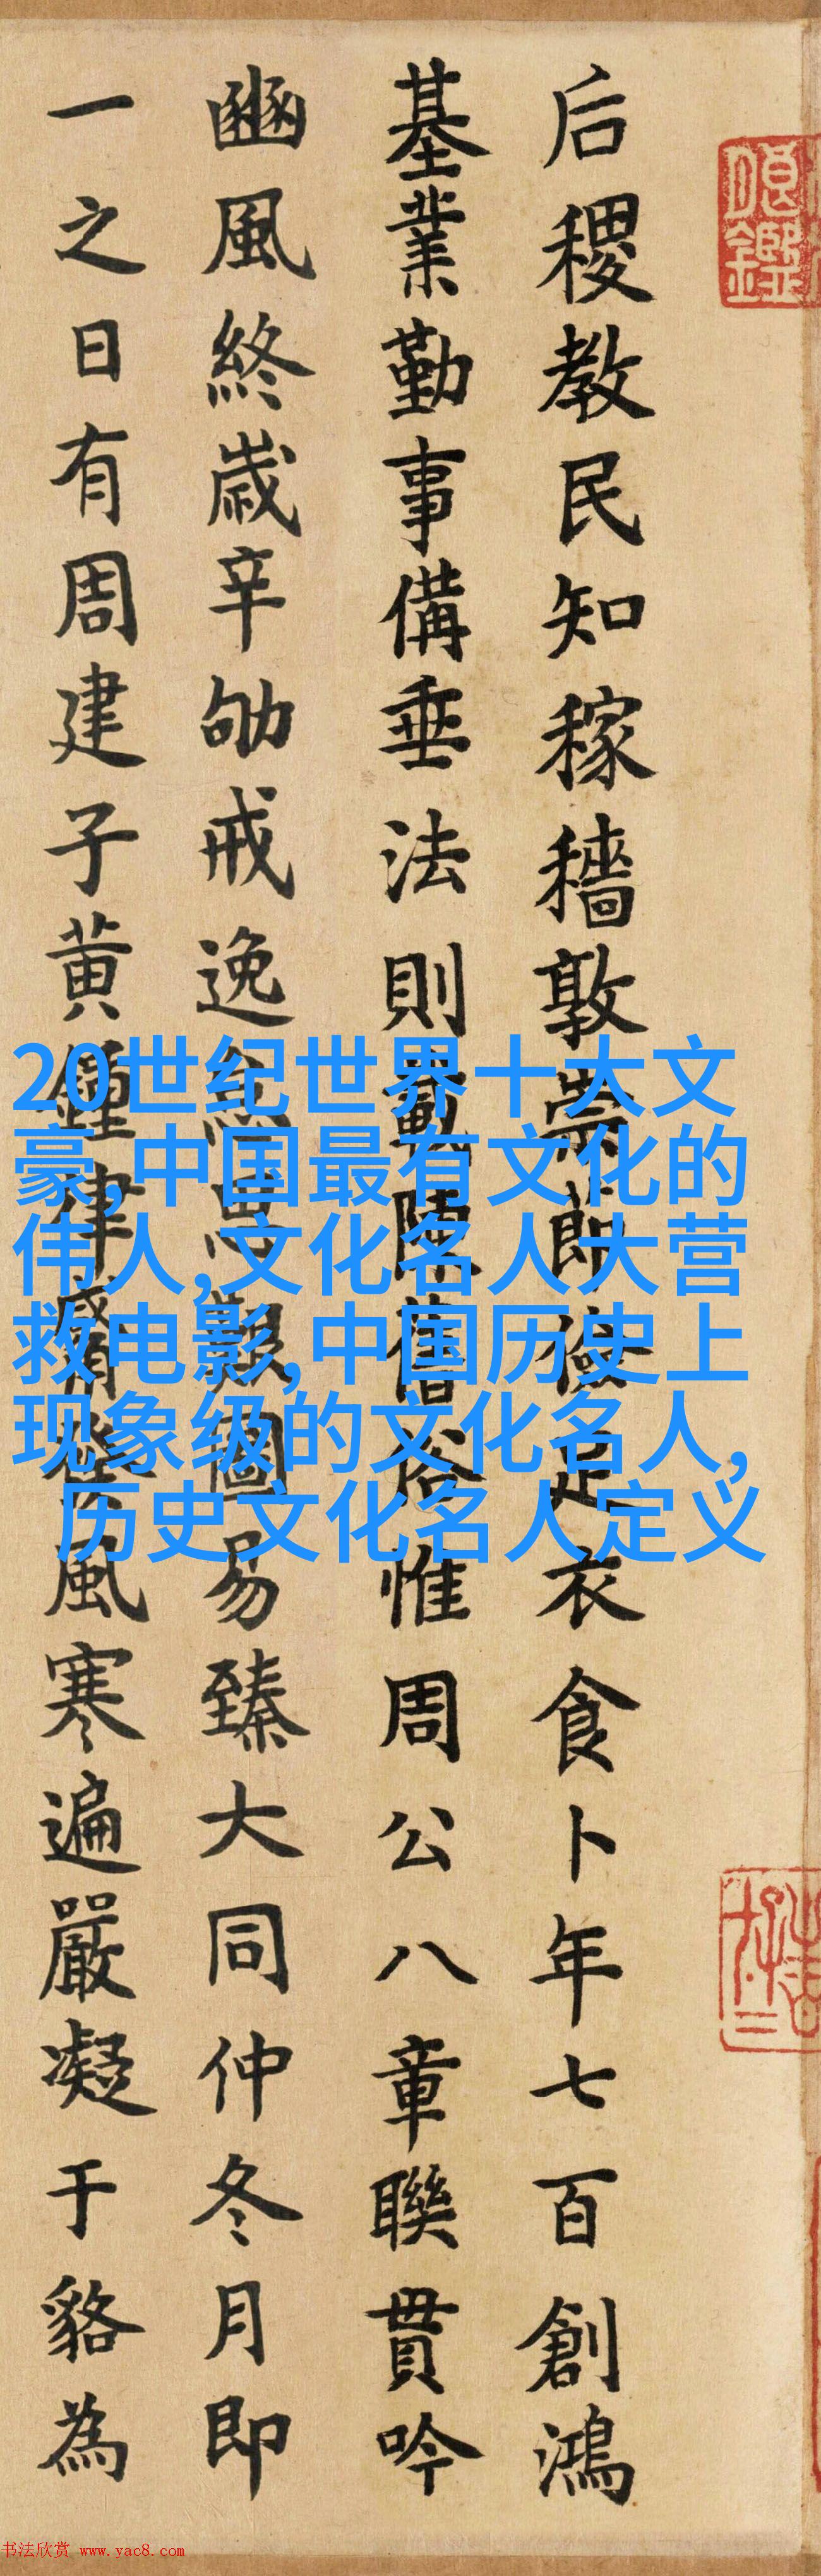 后稷教民知稼穡敦崇節儉足衣食卜年七百創鴻
基業勤事備垂法則載陳舊俗惟周公八章聯貫吟
豳風終歲辛劬戒逸圖易臻大同仲冬月即
一之日有周建子黄鍾律風寒遍嚴凝于貉為
20世纪世界十大文
豪,中国最有文化的
伟人,文化名人大营
救电影,中国历史上
现象级的文化名人,
历史文化名人定义
书法欣赏 www.yac8.com